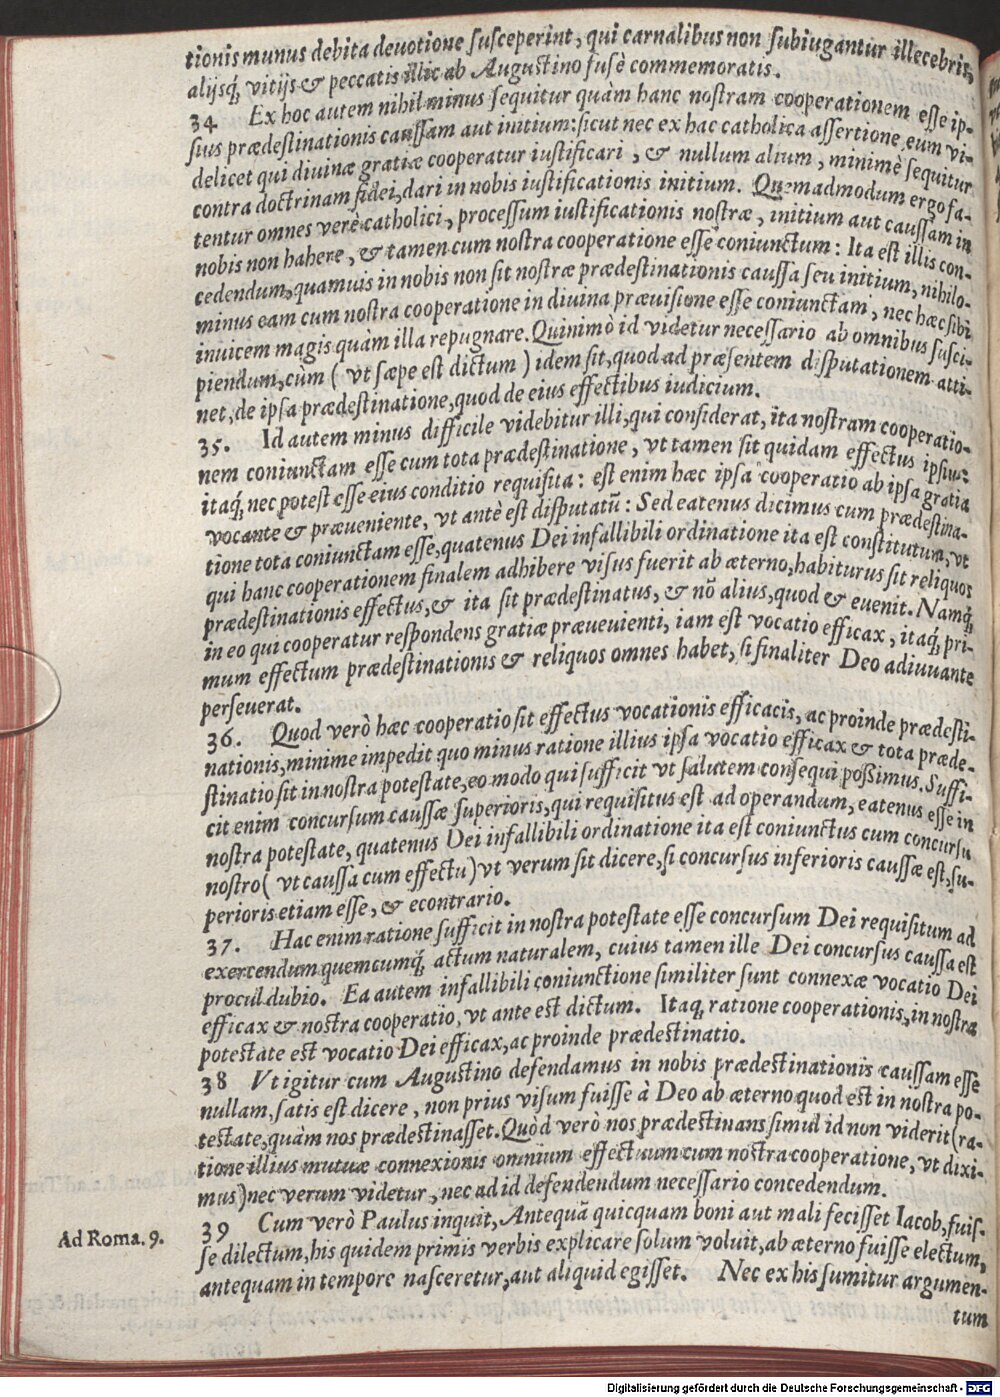 tionis munus debita deuotione susceperint, qui carnalibus non subiugantur illecebris,
alijsq́; vitijs & peccatis illic ab Augustino fusè commemoratis.
34 Ex hoc autem nihil minus sequitur quàm hanc nostram cooperationem esse ip-
sius prædestinationis caussam aut initium: sicut nec ex hac catholica assertione eum vi-
delicet qui diuinæ gratiæ cooperatur iustificari, & nullum alium, minimè sequitur
contra doctrinam fidei, dari in nobis iustificationis initium. Quemadmodum ergo fa-
tentur omnes verè catholici, processum iustificationis nostræ, initium aut caussam in
nobis non habere, & tamen cum nostra cooperatione esse coniunctum: Ita est illis con-
cedendum, quamuis in nobis non sit nostræ prædestinationis caussa seu initium, nihilo-
minus eam cum nostra cooperatione in diuina præuisione esse coniunctam, nec hæc sibi
inuicem magis quàm illa repugnare. Quinimò id videtur necessario ab omnibus susci-
piendum, cùm ( vt sæpe est dictum ) idem sit, quod ad præsentem disputationem atti-
net, de ipsa prædestinatione, quod de eius effectibus iudicium.
35. Id autem minus difficile videbitur illi, qui considerat, ita nostram cooperatio-
nem coniunctam esse cum tota prædestinatione, vt tamen sit quidam effectus ipsius:
itaq́; nec potest esse eius conditio requisita: est enim hæc ipsa cooperatio ab ipsa gratia
vocante & præueniente, vt antè est disputatũ: Sed eatenus dicimus cum prædestina-
tione tota coniunctam esse, quatenus Dei infallibili ordinatione ita est constitutum, vt
qui hanc cooperationem finalem adhibere visus fuerit ab æterno, habiturus sit reliquos
prædestinationis effectus, & ita sit prædestinatus, & nõ alius, quod & euenit. Namq́;
in eo qui cooperatur respondens gratiæ præueuienti, iam est vocatio efficax, itaq́; pri-
mum effectum prædestinationis & reliquos omnes habet, si finaliter Deo adiuuante
perseuerat.
36. Quod verò hæc cooperatio sit effectus vocationis efficacis, ac proinde prædesti-
nationis, minime impedit quo minus ratione illius ipsa vocatio efficax & tota præde-
stinatio sit in nostra potestate, eo modo qui sufficit vt salutem consequi possimus. Suffi-
cit enim concursum caussæ superioris, qui requisitus est ad operandum, eatenus esse in
nostra potestate, quatenus Dei infallibili ordinatione ita est coniunctus cum concursu
nostro ( vt caussa cum effectu ) vt verum sit dicere, si concursus inferioris caussæ est, su-
perioris etiam esse, & econtrario.
37. Hac enim ratione sufficit in nostra potestate esse concursum Dei requisitum ad
exercendum quemcumq́; actum naturalem, cuius tamen ille Dei concursus caussa est
procul dubio. Ea autem infallibili coniunctione similiter sunt connexæ vocatio Dei
efficax & nostra cooperatio, vt ante est dictum. Itaq; ratione cooperationis, in nostra
potestate est vocatio Dei efficax, ac proinde prædestinatio.
38 Vt igitur cum Augustino defendamus in nobis prædestinationis caussam esse
nullam, satis est dicere, non prius visum fuisse à Deo ab æterno quod est in nostra po-
testate, quàm nos prædestinasset. Quòd verò nos prædestinans simul id non viderit (ra-
tione illius mutuæ connexionis omnium effectuum cum nostra cooperatione, vt dixi-
mus) nec verum videtur, nec ad id defendendum necessario concedendum.
Ad Roma. 9.
39 Cum verò Paulus inquit, Antequã quicquam boni aut mali fecisset Iacob, fuis-
se dilectum, his quidem primis verbis explicare solum voluit, ab æterno fuisse electum,
antequam in tempore nasceretur, aut aliquid egisset. Nec ex his sumitur argumen-
tum
Digitalisierung gefördert durch die Deutsche Forschungsgemeinschaft - DFG